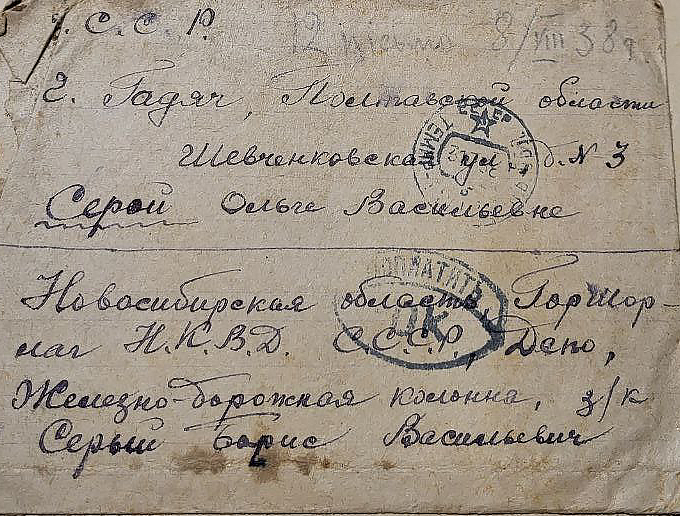 У.С.С.Р. 12 письмо 8/VIII 38 г.
г. Гадяч, Полтавской области
Шевченковская ул., д. N 3
Серой Ольге Васильевне
ДОПЛАТИТЬ
Новосибирская область, ГорШор-
лаг Н.К.В.Д. С.С.С.Р., Депо,
Железно-дорожная колонна, з/к
Серый Борис Васильевич